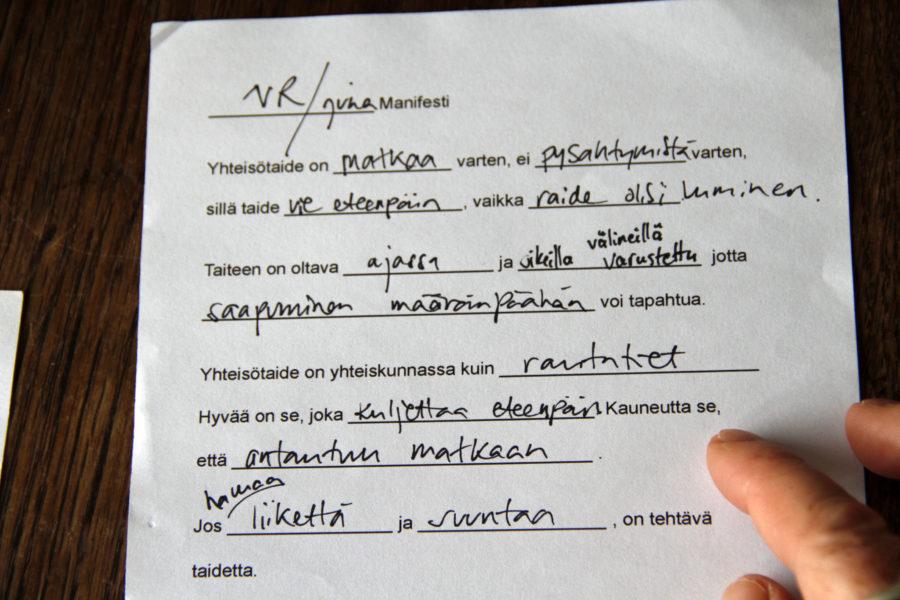 VR/juna Manifesti
Yhteisötaide on matkaa varten, ei pysähtymistä varten,
sillä taide vie eteenpäin, vaikka raide olisi luminen.
välineillä
Taiteen on oltava ajassa ja oikeilla varustettu jotta
saapuminen määränpäähän voi tapahtua.
Yhteisötaide on yhteiskunnassa kuin rautatiet
Hyvää on se, joka kuljettaa eteenpäin. Kauneutta se,
että antautuu matkaan.
haluaa
Jos liikettä ja suuntaa, on tehtävä
taidetta.